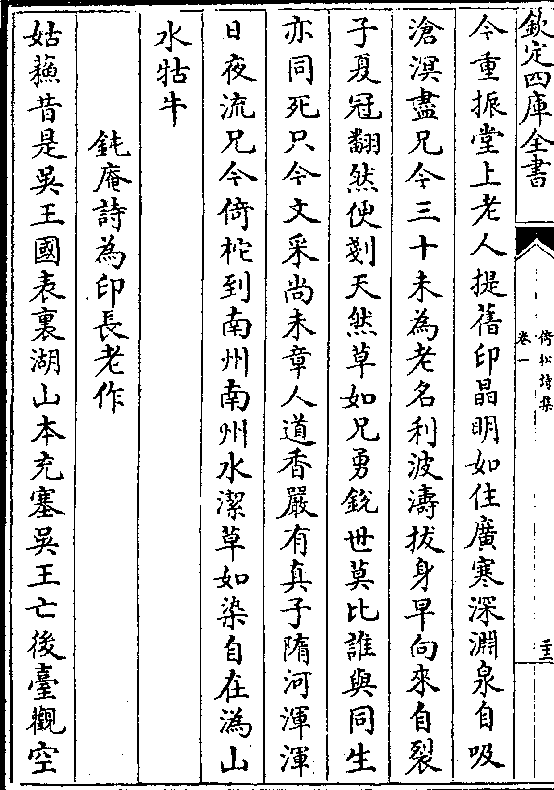 欽定四庫全書
倚松詩集
卷一
今重振堂上老人提舊印晶明如住廣寒深淵泉自吸
滄溟盡兄今三十未為老名利波濤拔身早向來自裂
子夏冠翻然便剗天然草如兄勇銳世莫比誰與同生
亦同死只今文采尚未章人道香嚴有真子隋河渾渾
日夜流兄今倚柁到南州南州水潔草如染自在溈山
水牯牛
鈍庵詩為印長老作
姑蘇昔是吳王國表裏湖山本充塞吳王亡後臺觀空